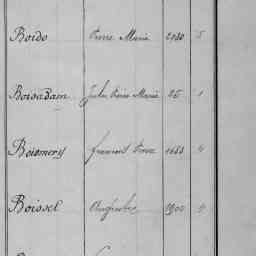 Boido Pierre Marie 2980 5
Boisadam Jules Pierre Marie 25 1
Boismery François Pierre 1683 "
Boissel Auguste 1900 "